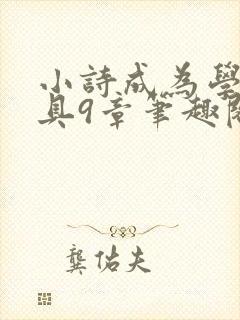 小詩成為學
具9章筆趣閣
龔佑夫